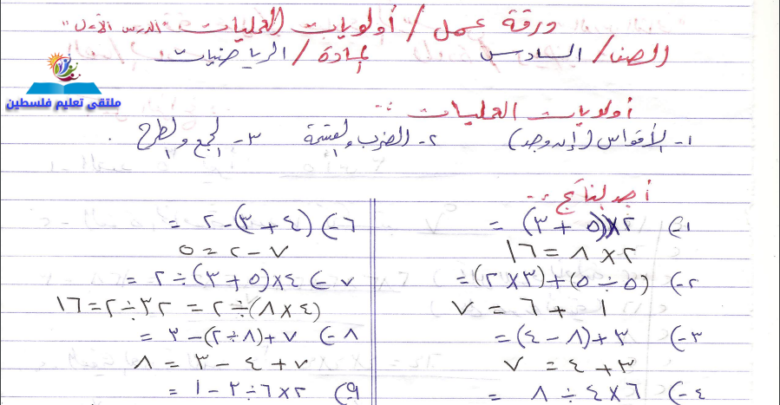 ورقة عمل / أولويات العمليات "الدرس الأول"
الصف / السادس المادة / الرياضيات
ملتقى تعليم فلسطين
أولويات العمليات :-
١- الأقواس (إن وجد) ٢- الضرب والقسمة ٣- الجمع والطرح .
أجد الناتج :-
١-) ٢×(٥ + ٣) =
٢ × ٨ = ١٦
٢-) (٥ ÷ ٥)+(٣×٢)=
١ + ٦ = ٧
٣-) ٣+(٨ - ٤)=
٣ + ٤ = ٧
٤-) ٦×٤ ÷ ٨ =
٦-) (٤ + ٣)-٢ =
٧ - ٢ = ٥
٧-) ٤×(٥+٣)÷٢ =
(٤×٨)÷٢ = ٣٢÷٢=١٦
٨-) ٧+(٨÷٢)-٣ =
٧+٤ - ٣ = ٨
٩-) ٢×٦÷٣ - ١ =